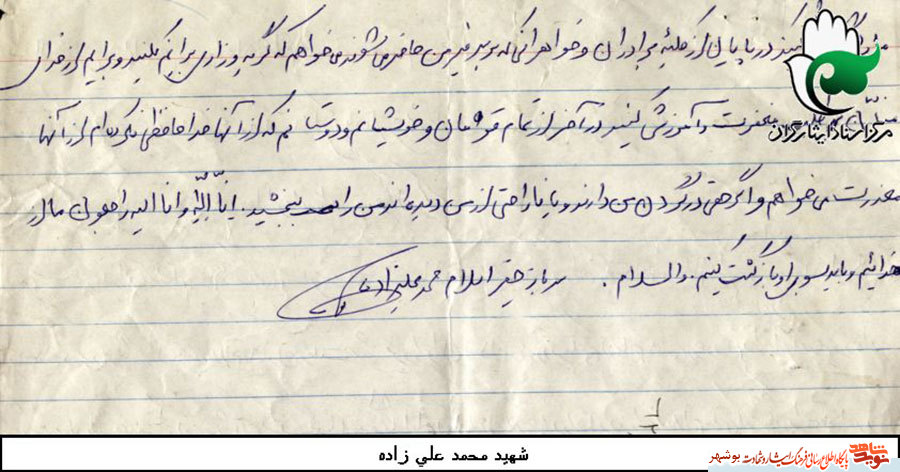 در پایان از کلیهٔ برادران و خواهرانی که بر سر قبر من حاضر می شوند می خواهم که گریه و زاری برایم نکنید و برایم از خدای
مغفرت و آمرزش کنید در آخر از تمام قومان و خویشانم و دوستانم که از آنها خداحافظی نکرده ام از آنها
معذرت می خواهم و اگر حقی در گردن من دارند و یا ناراحتی از من دیده اند من را ببخشید. انا لله و انا الیه راجعون ما از
خدائیم و باید بسوی او بازگشت کنیم. والسلام. سرباز حقیر اسلام محمد علیزاده
مرکز اسناد ایثارگران
شهید محمد علي زاده
نوید شاهد پایگاه اطلاع رسانی فرهنگ ایثار و شهادت بوشهر